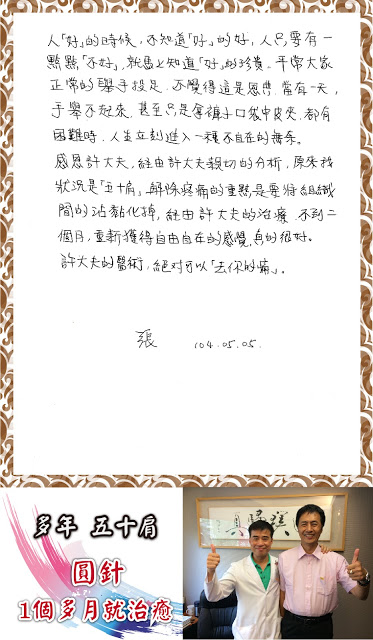 人「好」的時候,不知道「好」的好,人只要有一
點點「不好」,就馬上知道「好」的珍貴。平常大家
正常的舉手投足,不覺得這是恩典,當有一天,
手舉不起來,甚至只是拿褲子口袋中皮夾,都有
困難時,人生立刻進入一種不自在的
感恩許大夫,經由許大夫親切的分析,原來我
狀況是「五十肩」,解除疼痛的重點是要將組織
間的沾黏化掉,經由許大夫的治療,不到二
個月,重新獲得自由自在的感覺,真的很好。
許大夫的醫術,絕對可以「去你的痛」。
張 104.05.05.
多年 五十肩
圓針
1個多月就治癒